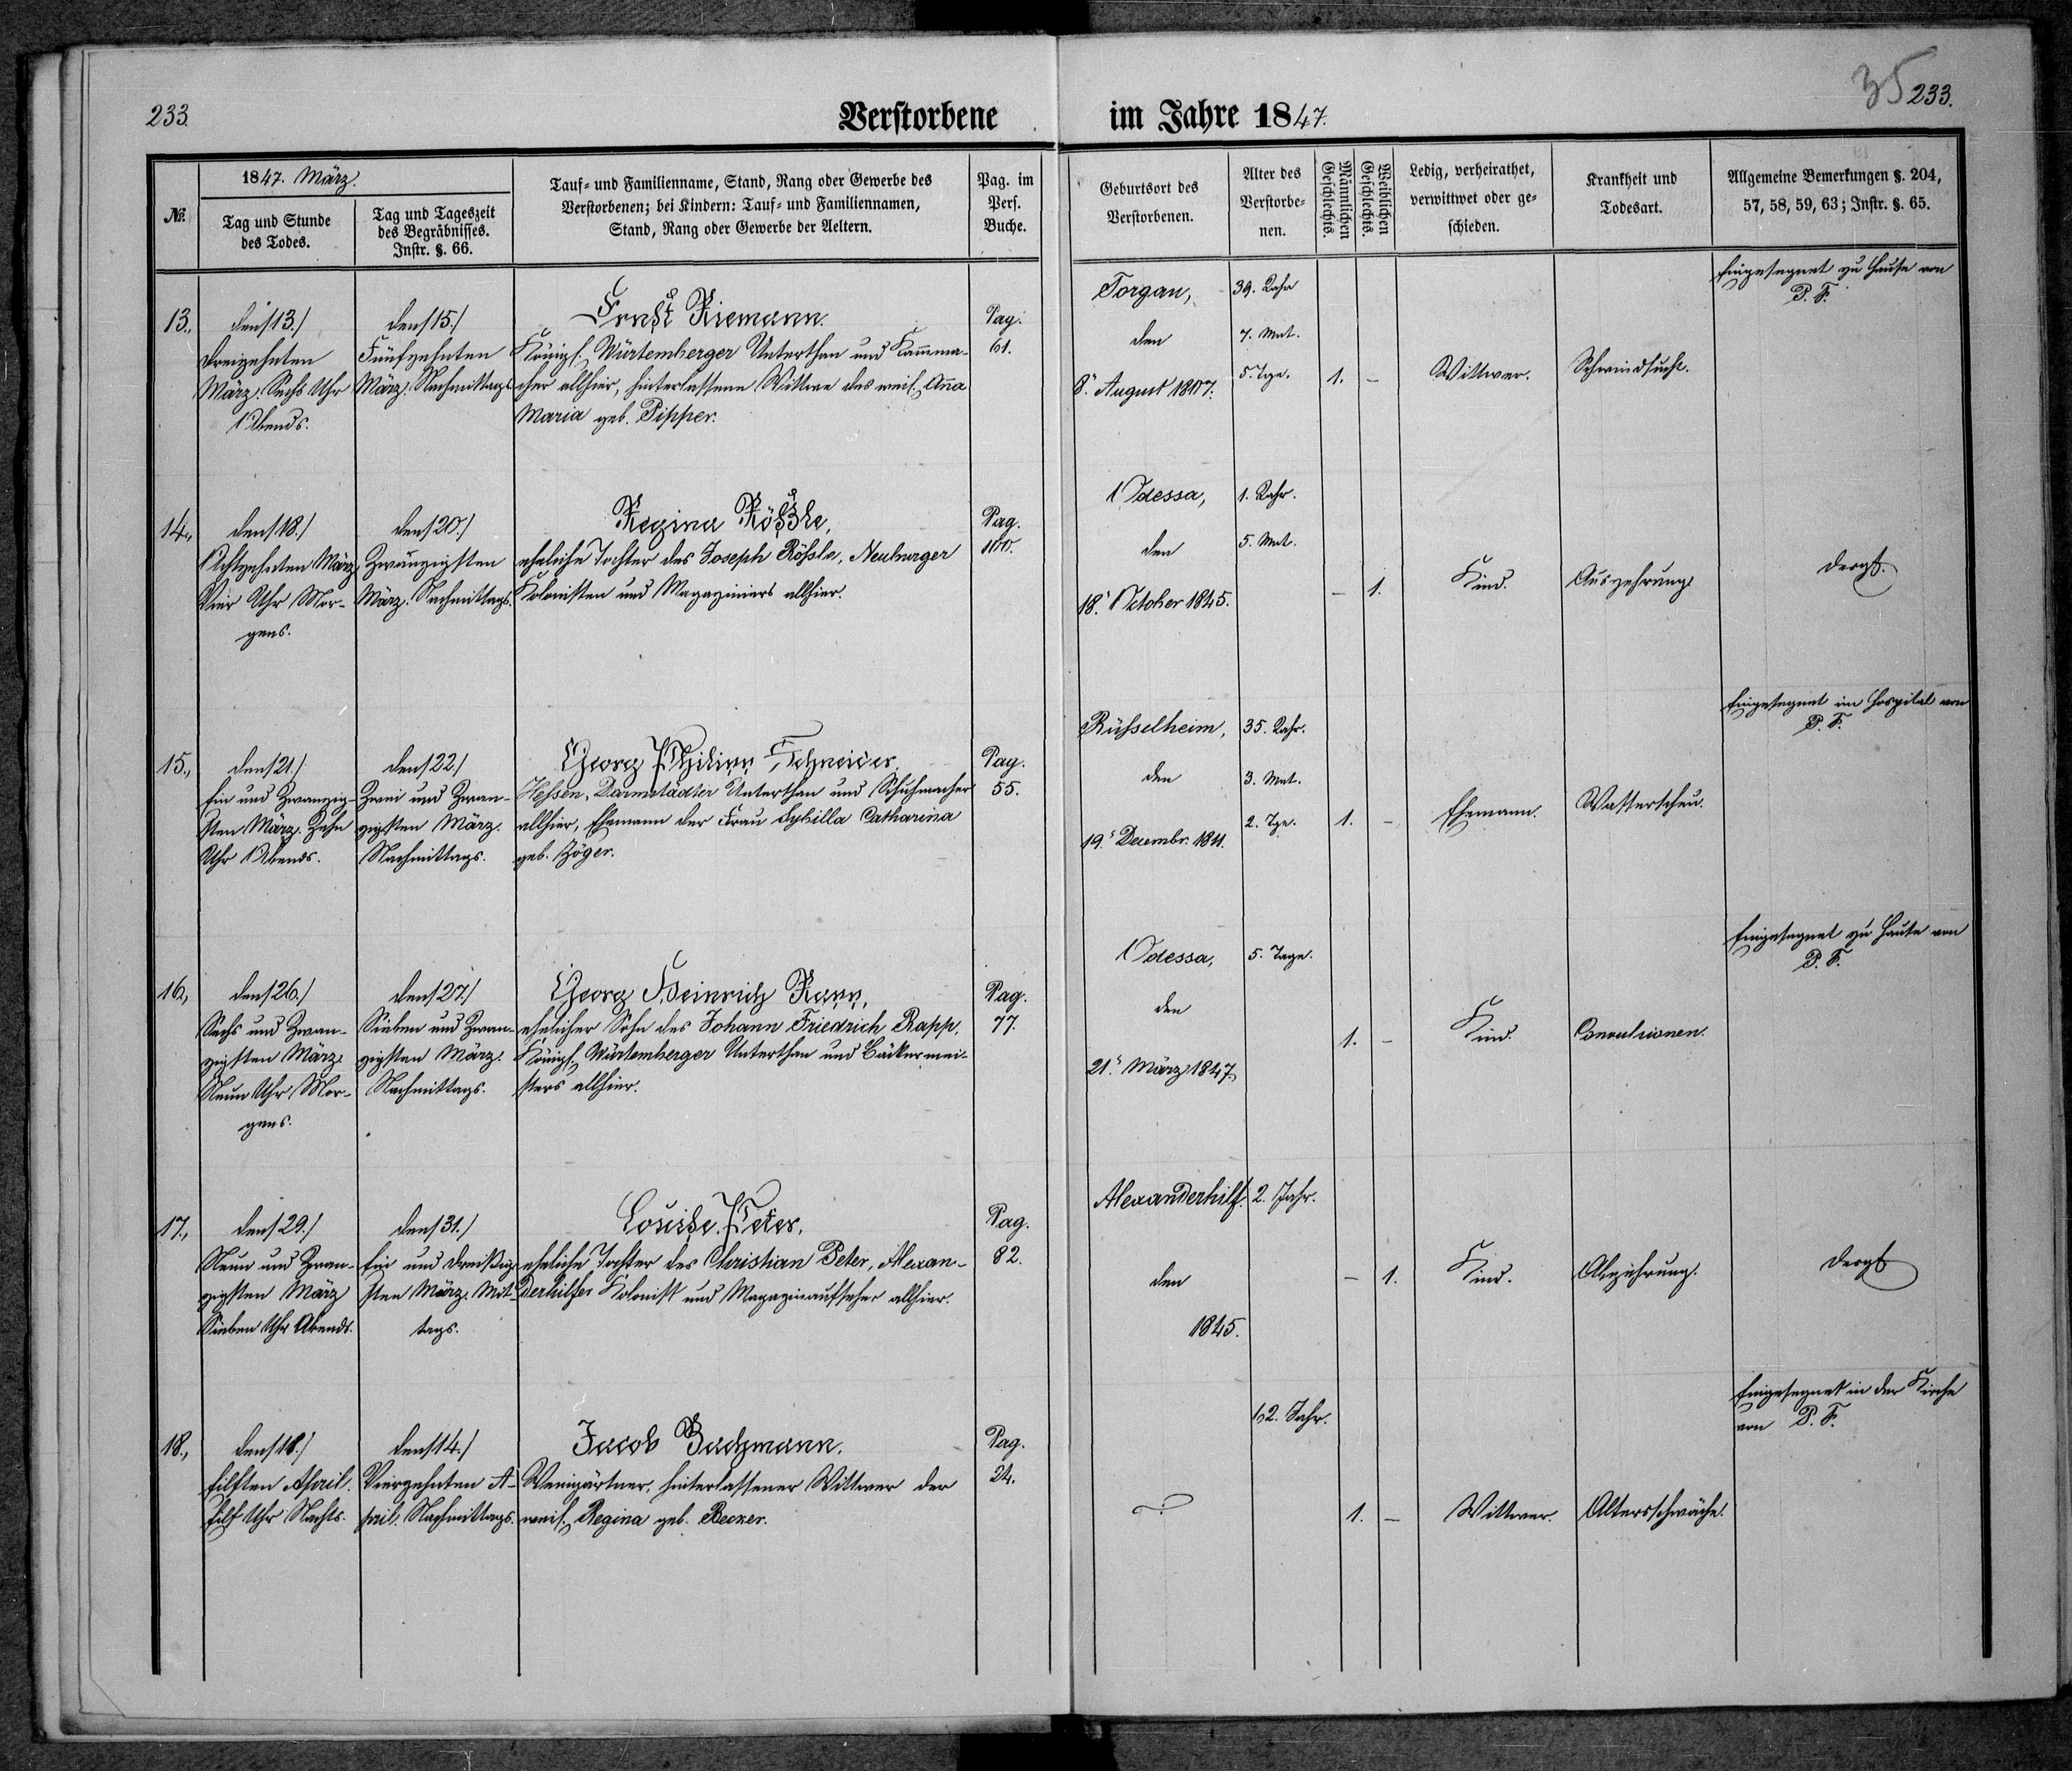 233.
Verstorbene
im Jahre 1847.
35
233.
No.
1847. März.
Tag und Stunde
des Todes.
Tag und Tageszeit
des Begräbnisses.
Instr. §. 66.
Tauf- und Familienname, Stand, Rang oder Gewerbe des
Verstorbenen; bei Kindern: Tauf- und Familiennamen,
Stand, Rang oder Gewerbe der Aeltern.
Pag. im
Pers.
Buche.
Geburtsort des
Verstorbenen.
Alter des
Verstorbe-
nen.
Männlichen
Geschlechts.
Weiblichen
Geschlechts.
Ledig, verheirathet,
verwittwet oder ge-
schieden.
Krankheit und
Todesart.
Allgemeine Bemerkungen §. 204,
57, 58, 59, 63; Instr. §. 65.
13.,
den 13./
Dreizehnten
März. Sechs Uhr
Abends.
den 15./
Fünfzehnten
März. Nachmittags
Ernst Riemann.
Königl. Würtemberger Unterthan und Kamma-
cher allhier, hinterlassener Wittwer des weil. Anna
Maria geb. Pipper.
Pag.
61.
Torgau,
den
8. August 1807.
39. Jahr
7. Mnt.
5. Tge.
1.
–
Wittwer.
Schwindsucht.
Eingesegnet zu Hause von
P. F.
14.,
den 18./
Achtzehnten März
Vier Uhr Mor-
gens.
den 20./
Zwanzigsten
März. Nachmittags.
Regina Rößle,
eheliche Tochter des Joseph Rößle, Neuburger
Kolonisten und Magaziniers allhier.
Pag.
100.
Odessa,
den
18. October 1845.
1. Jahr.
5. Mnt.
–
1.
Kind.
Auszehrung
dergl.
15.,
den 21./
Ein und Zwanzig-
sten März. Zehn
Uhr Abends.
den 22./
Zwei und Zwan-
zigsten März.
Nachmittags.
Georg Philipp Schneider.
Hessen, Darmstädter Unterthan und Schuhmacher
allhier, Ehemann der Frau Sybilla Catharina
geb. Zöger.
Pag.
55.
Rüsselheim,
den
19. Decembr. 1811.
35. Jahr.
3. Mnt.
2. Tge.
1.
–
Ehemann.
Wasserscheu.
Eingesegnet im Hospital von
P. F.
16.,
den 26./
Sechs und Zwan-
zigsten März.
Neun Uhr Mor-
gens.
den 27./
Sieben und Zwan-
zigsten März.
Nachmittags.
Georg Heinrich Rapp,
ehelicher Sohn des Johann Friedrich Rapp,
Königl. Würtemberger Unterthan und Bäckermei-
sters allhier.
Pag.
77.
Odessa,
den
21. März 1847.
5. Tage.
1.
–
Kind.
Convulsionen.
Eingesegnet zu Hause von
P. F.
17.,
den 29./
Neun und Zwan-
zigsten März
Sieben Uhr Abends.
den 31./
Ein und dreißig-
sten März. Mit-
tags.
Louise Peter,
eheliche Tochter des Christian Peter, Alexan-
derhilfer Kolonist und Magazinaufseher allhier.
Pag.
82.
Alexanderhilf.
den
1845.
2. Jahr.
–
1.
Kind.
Abzehrung.
dergl.
18.,
den 11./
Eilften April.
Eilf Uhr Nachts.
den 14./
Vierzehnten A-
pril. Nachmittags.
Jacob Bachmann.
Weingärtner, hinterlassener Wittwer der
weil. Regina geb. Becker.
Pag.
24.
62. Jahr.
1.
–
Wittwer.
Altersschwäche.
Eingesegnet in der Kirche
von P. F.